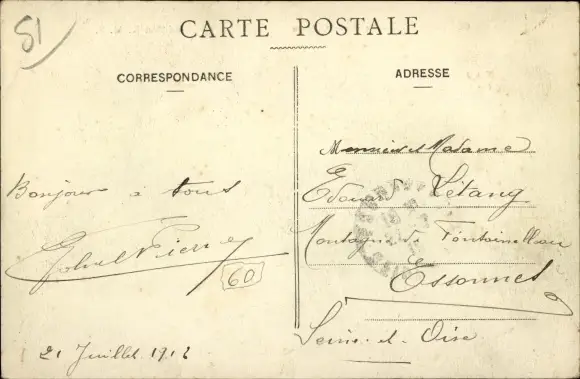 51
CARTE POSTALE
CORRESPONDANCE
ADRESSE
Monsieur et Madame
Edouard Létang
Montagne de Fontainebleau
Essonnes
Seine-et-Oise
Bonjour à tous
Pierre
60
21 Juillet 1912